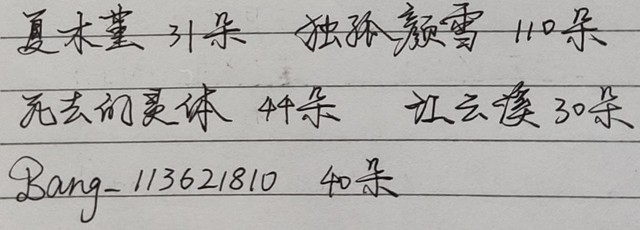 夏木堇 31朵 独孤颜雪 110朵
死去的灵体 44朵 江云溪 30朵
Bang-113621810 40朵